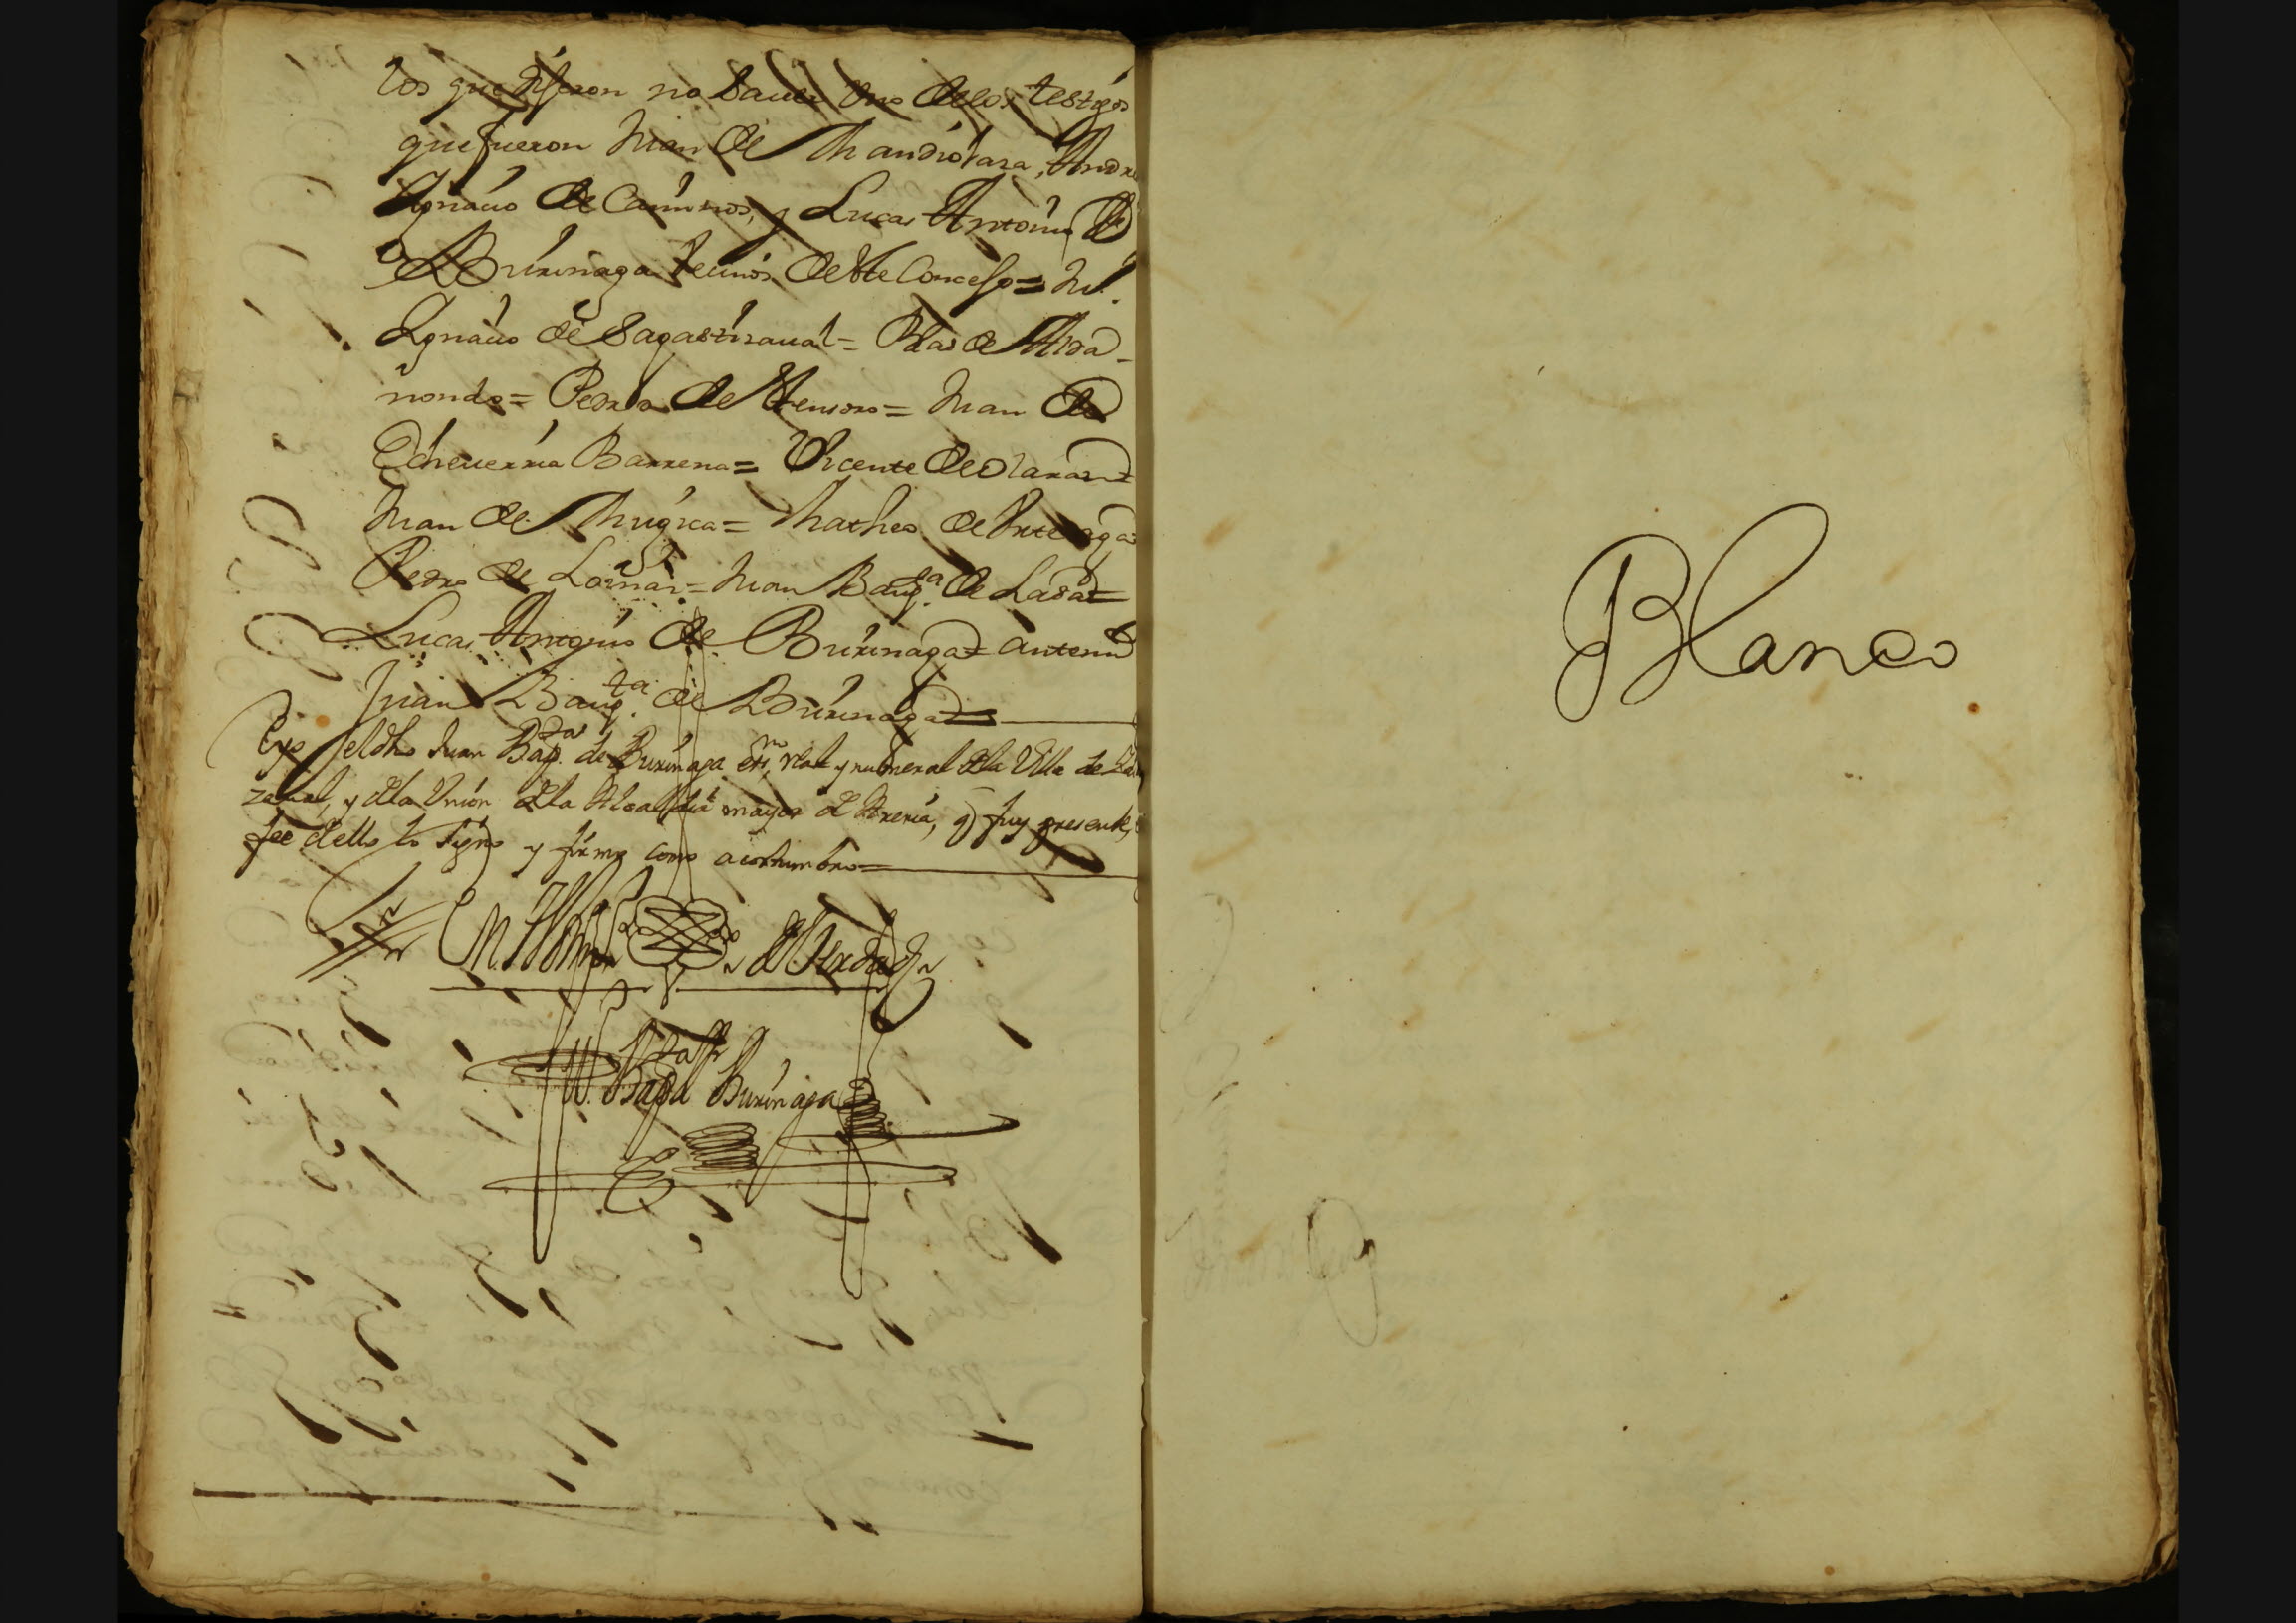 los que dijeron no Sauer Vno delos testigos
que fueron Juan de Mandiolara, Andre
Ignacio de Caminos, y Lucas Antonio de
Burinaga Vecinos deste Concejo = Ju.
Ignacio de Sagastiraual = Blas de Arda-
nondo = Pedro de Atensoro = Juan de
Echeuerria Barrena = Vicente de Olaran =
Juan de Mugica = Matheo de Vrteaga
Pedro de Loinas = Juan Baup.ta de Lasa =
Lucas Antonio de Burinaga = antemi
Juan Baup.ta de Burinaga =
Eyo el dho Juan Bap.ta de Burinaga esno. real y numeral dla Villa de
zaual, y dla Vnion dla Alcaldia mayor d Areria, q fuy presente,
fee dello lo signo y firmo como acostumbro =
En testimo d Verdad
Ju. Bapta Burinaga
Blanco